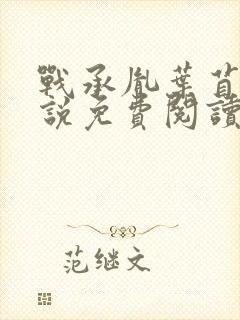 戰承胤葉苜
說免費閱讀
范继文